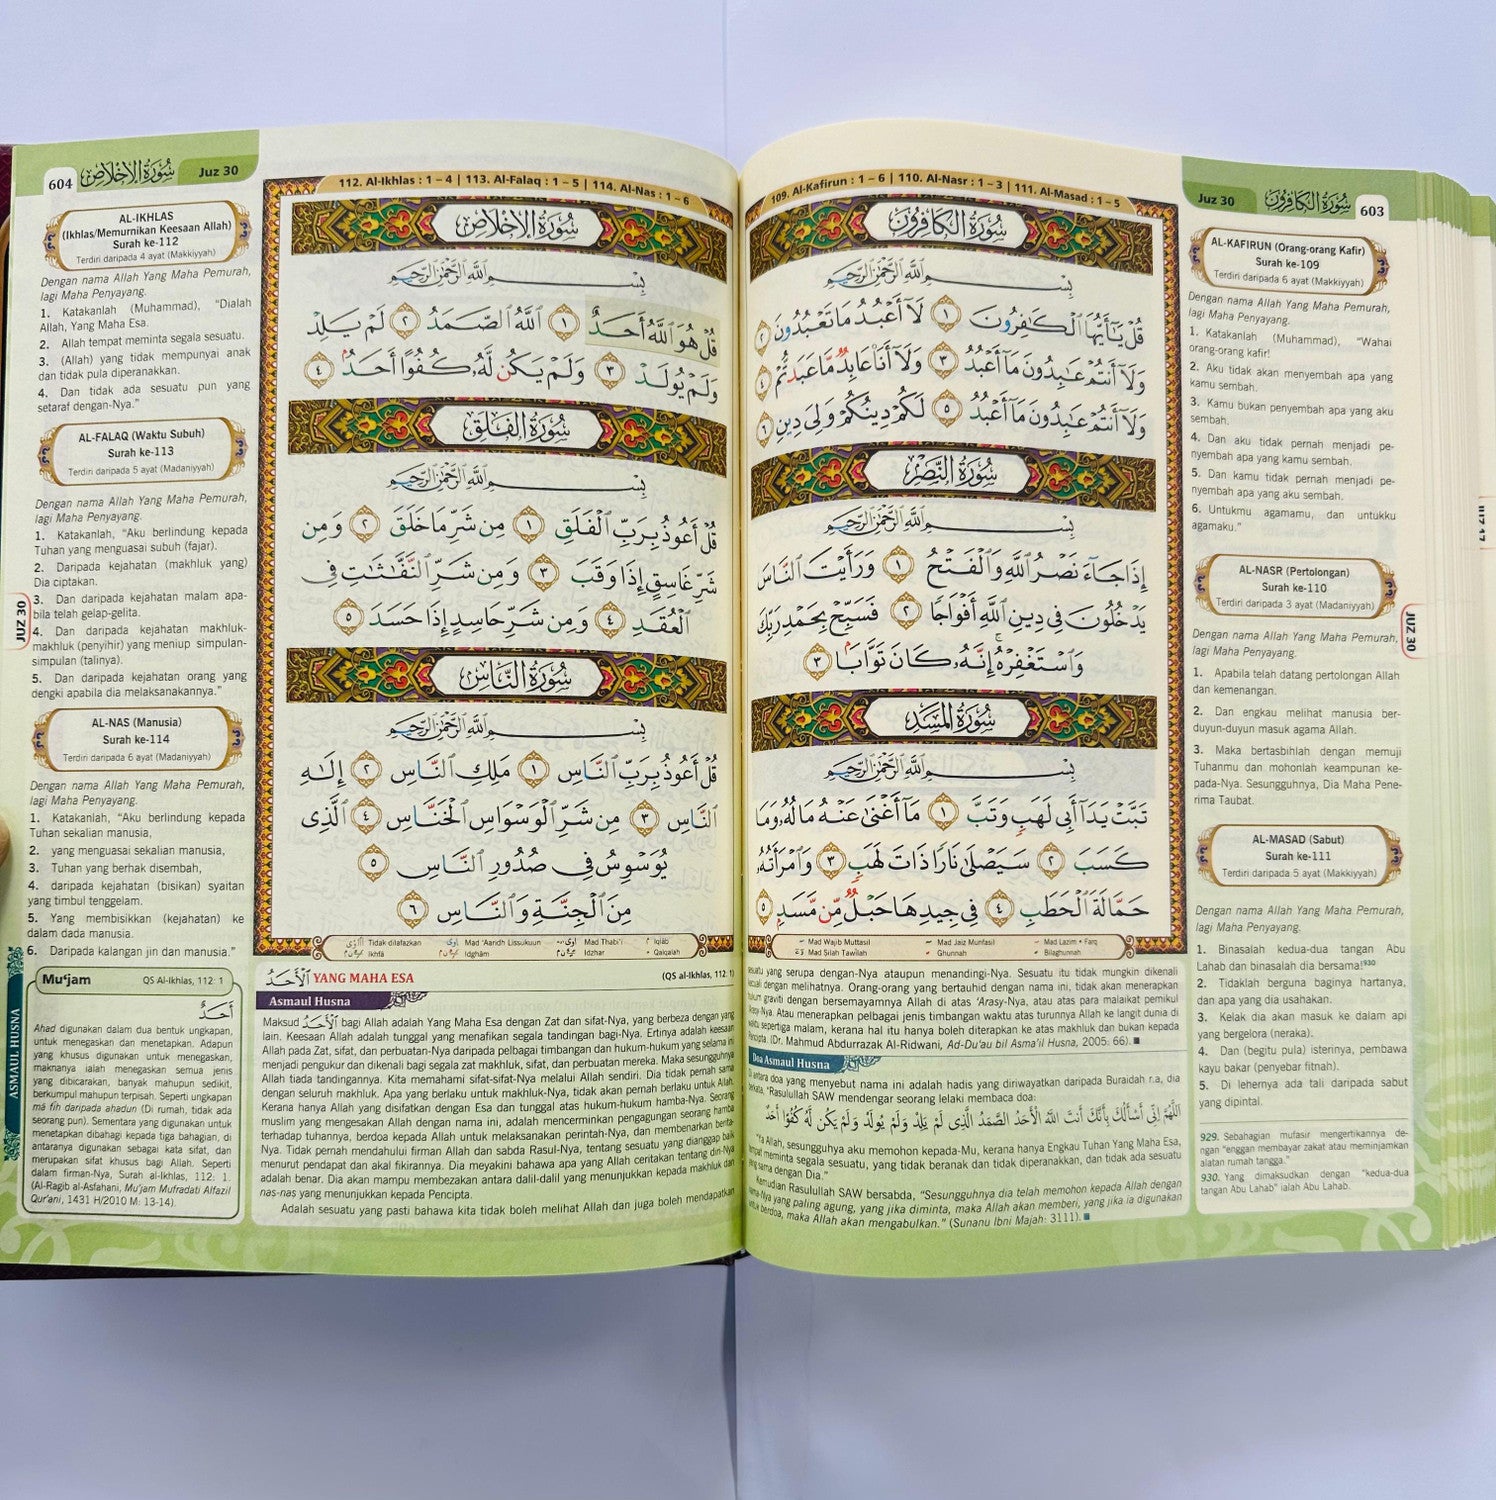 Juz 30
سُورَةُ الْكَافِرُونَ
603
109. Al-Kafirun : 1 – 6 | 110. Al-Nasr : 1 – 3 | 111. Al-Masad : 1 – 5
سُورَةُ الْكَافِرُونَ
بِسْمِ اللَّهِ الرَّحْمَٰنِ الرَّحِيمِ
قُلْ يَٰٓأَيُّهَا ٱلْكَٰفِرُونَ ١ لَآ أَعْبُدُ مَا تَعْبُدُونَ ٢
وَلَآ أَنتُمْ عَٰبِدُونَ مَآ أَعْبُدُ ٣ وَلَآ أَنَا۠ عَابِدٌ مَّا عَبَدتُّمْ ٤
وَلَآ أَنتُمْ عَٰبِدُونَ مَآ أَعْبُدُ ٥ لَكُمْ دِينُكُمْ وَلِىَ دِينِ ٦
سُورَةُ النَّصْرِ
بِسْمِ اللَّهِ الرَّحْمَٰنِ الرَّحِيمِ
إِذَا جَآءَ نَصْرُ ٱللَّهِ وَٱلْفَتْحُ ١ وَرَأَيْتَ ٱلنَّاسَ
يَدْخُلُونَ فِى دِينِ ٱللَّهِ أَفْوَاجًا ٢ فَسَبِّحْ بِحَمْدِ رَبِّكَ
وَٱسْتَغْفِرْهُ ۚ إِنَّهُۥ كَانَ تَوَّابًۢا ٣
سُورَةُ الْمَسَدِ
بِسْمِ اللَّهِ الرَّحْمَٰنِ الرَّحِيمِ
تَبَّتْ يَدَآ أَبِى لَهَبٍ وَتَبَّ ١ مَآ أَغْنَىٰ عَنْهُ مَالُهُۥ وَمَا
كَسَبَ ٢ سَيَصْلَىٰ نَارًا ذَاتَ لَهَبٍ ٣ وَٱمْرَأَتُهُۥ
حَمَّالَةَ ٱلْحَطَبِ ٤ فِى جِيدِهَا حَبْلٌ مِّن مَّسَدٍۭ ٥
Mad Wajib Muttasil Mad Jaiz Munfasil Mad Lazim • Farq
Mad Silah Tawilah Ghunnah Bilaghunnah
AL-KAFIRUN (Orang-orang Kafir)
Surah ke-109
Terdiri daripada 6 ayat (Makkiyyah)
Dengan nama Allah Yang Maha Pemurah,
lagi Maha Penyayang.
1. Katakanlah (Muhammad), "Wahai
orang-orang kafir!
2. Aku tidak akan menyembah apa yang
kamu sembah.
3. Kamu bukan penyembah apa yang aku
sembah.
4. Dan aku tidak pernah menjadi pe-
nyembah apa yang kamu sembah.
5. Dan kamu tidak pernah menjadi pe-
nyembah apa yang aku sembah.
6. Untukmu agamamu, dan untukku
agamaku."
AL-NASR (Pertolongan)
Surah ke-110
Terdiri daripada 3 ayat (Madaniyyah)
Dengan nama Allah Yang Maha Pemurah,
lagi Maha Penyayang.
1. Apabila telah datang pertolongan Allah
dan kemenangan.
2. Dan engkau melihat manusia ber-
duyun-duyun masuk agama Allah.
3. Maka bertasbihlah dengan memuji
Tuhanmu dan mohonlah keampunan ke-
pada-Nya. Sesungguhnya, Dia Maha Pene-
rima Taubat.
AL-MASAD (Sabut)
Surah ke-111
Terdiri daripada 5 ayat (Makkiyyah)
Dengan nama Allah Yang Maha Pemurah,
lagi Maha Penyayang.
1. Binasalah kedua-dua tangan Abu
Lahab dan binasalah dia bersama!930
2. Tidaklah berguna baginya hartanya,
dan apa yang dia usahakan.
3. Kelak dia akan masuk ke dalam api
yang bergelora (neraka).
4. Dan (begitu pula) isterinya, pembawa
kayu bakar (penyebar fitnah).
5. Di lehernya ada tali daripada sabut
yang dipintal.
929. Sebahagian mufasir mengertikannya de-
ngan "enggan membayar zakat atau meminjamkan
alatan rumah tangga."
930. Yang dimaksudkan dengan "kedua-dua
tangan Abu Lahab" ialah Abu Lahab.
JUZ 30
JUZ 17
sesuatu yang serupa dengan-Nya ataupun menandingi-Nya. Sesuatu itu tidak mungkin dikenali
kecuali dengan melihatnya. Orang-orang yang bertauhid dengan nama ini, tidak akan menerapkan
hukum graviti dengan bersemayamnya Allah di atas 'Arasy-Nya, atau atas para malaikat pemikul
'Arasy-Nya. Atau menerapkan pelbagai jenis timbangan waktu atas turunnya Allah ke langit dunia di
waktu sepertiga malam, kerana hal itu hanya boleh diterapkan ke atas makhluk dan bukan kepada
Pencipta. (Dr. Mahmud Abdurrazak Al-Ridwani, Ad-Du'au bil Asma'il Husna, 2005: 66).
Doa Asmaul Husna
Di antara doa yang menyebut nama ini adalah hadis yang diriwayatkan daripada Buraidah r.a, dia
berkata, "Rasulullah SAW mendengar seorang lelaki membaca doa:
اَللّٰهُمَّ إِنِّي أَسْأَلُكَ بِأَنَّكَ أَنْتَ اللهُ الْأَحَدُ الصَّمَدُ الَّذِي لَمْ يَلِدْ وَلَمْ يُولَدْ وَلَمْ يَكُنْ لَهُ كُفُوًا أَحَدٌ
"Ya Allah, sesungguhya aku memohon kepada-Mu, kerana hanya Engkau Tuhan Yang Maha Esa,
tempat meminta segala sesuatu, yang tidak beranak dan tidak diperanakkan, dan tidak ada sesuatu
yang sama dengan Dia."
Kemudian Rasulullah SAW bersabda, "Sesungguhnya dia telah memohon kepada Allah dengan
nama-Nya yang paling agung, yang jika diminta, maka Allah akan memberi, yang jika ia digunakan
untuk berdoa, maka Allah akan mengabulkan." (Sunanu Ibni Majah: 3111).
604
سُورَةُ الْإِخْلَاصِ
Juz 30
112. Al-Ikhlas : 1 – 4 | 113. Al-Falaq : 1 – 5 | 114. Al-Nas : 1 – 6
سُورَةُ الْإِخْلَاصِ
بِسْمِ اللَّهِ الرَّحْمَٰنِ الرَّحِيمِ
قُلْ هُوَ ٱللَّهُ أَحَدٌ ١ ٱللَّهُ ٱلصَّمَدُ ٢ لَمْ يَلِدْ
وَلَمْ يُولَدْ ٣ وَلَمْ يَكُن لَّهُۥ كُفُوًا أَحَدٌۢ ٤
سُورَةُ الْفَلَقِ
بِسْمِ اللَّهِ الرَّحْمَٰنِ الرَّحِيمِ
قُلْ أَعُوذُ بِرَبِّ ٱلْفَلَقِ ١ مِن شَرِّ مَا خَلَقَ ٢ وَمِن
شَرِّ غَاسِقٍ إِذَا وَقَبَ ٣ وَمِن شَرِّ ٱلنَّفَّٰثَٰتِ فِى
ٱلْعُقَدِ ٤ وَمِن شَرِّ حَاسِدٍ إِذَا حَسَدَ ٥
سُورَةُ النَّاسِ
بِسْمِ اللَّهِ الرَّحْمَٰنِ الرَّحِيمِ
قُلْ أَعُوذُ بِرَبِّ ٱلنَّاسِ ١ مَلِكِ ٱلنَّاسِ ٢ إِلَٰهِ
ٱلنَّاسِ ٣ مِن شَرِّ ٱلْوَسْوَاسِ ٱلْخَنَّاسِ ٤ ٱلَّذِى
يُوَسْوِسُ فِى صُدُورِ ٱلنَّاسِ ٥
مِنَ ٱلْجِنَّةِ وَٱلنَّاسِ ٦
Tidak dilafazkan Mad 'Aaridh Lissukuun Mad Thabi'i Iqlab
Ikhfa Idgham Idzhar Qalqalah
AL-IKHLAS
(Ikhlas/Memurnikan Keesaan Allah)
Surah ke-112
Terdiri daripada 4 ayat (Makkiyyah)
Dengan nama Allah Yang Maha Pemurah,
lagi Maha Penyayang.
1. Katakanlah (Muhammad), "Dialah
Allah, Yang Maha Esa.
2. Allah tempat meminta segala sesuatu.
3. (Allah) yang tidak mempunyai anak
dan tidak pula diperanakkan.
4. Dan tidak ada sesuatu pun yang
setaraf dengan-Nya."
AL-FALAQ (Waktu Subuh)
Surah ke-113
Terdiri daripada 5 ayat (Madaniyyah)
Dengan nama Allah Yang Maha Pemurah,
lagi Maha Penyayang.
1. Katakanlah, "Aku berlindung kepada
Tuhan yang menguasai subuh (fajar).
2. Daripada kejahatan (makhluk yang)
Dia ciptakan.
3. Dan daripada kejahatan malam apa-
bila telah gelap-gelita.
4. Dan daripada kejahatan makhluk-
makhluk (penyihir) yang meniup simpulan-
simpulan (talinya).
5. Dan daripada kejahatan orang yang
dengki apabila dia melaksanakannya."
JUZ 30
AL-NAS (Manusia)
Surah ke-114
Terdiri daripada 6 ayat (Madaniyyah)
Dengan nama Allah Yang Maha Pemurah,
lagi Maha Penyayang.
1. Katakanlah, "Aku berlindung kepada
Tuhan sekalian manusia,
2. yang menguasai sekalian manusia,
3. Tuhan yang berhak disembah,
4. daripada kejahatan (bisikan) syaitan
yang timbul tenggelam.
5. Yang membisikkan (kejahatan) ke
dalam dada manusia.
6. Daripada kalangan jin dan manusia."
ASMAUL HUSNA
Mu'jam
QS Al-Ikhlas, 112: 1
أَحَدٌ
Ahad digunakan dalam dua bentuk ungkapan,
untuk menegaskan dan menetapkan. Adapun
yang khusus digunakan untuk menegaskan,
maknanya ialah menegaskan semua jenis
yang dibicarakan, banyak mahupun sedikit,
berkumpul mahupun terpisah. Seperti ungkapan
ma fih daripada ahadun (Di rumah, tidak ada
seorang pun). Sementara yang digunakan untuk
menetapkan dibahagi kepada tiga bahagian, di
antaranya digunakan sebagai kata sifat, dan
merupakan sifat khusus bagi Allah. Seperti
dalam firman-Nya, Surah Al-Ikhlas, 112: 1.
(Al-Ragib al-Asfahani, Mu'jam Mufradati Alfazil
Qur'ani, 1431 H/2010 M: 13-14).
اَلْأَحَدُ YANG MAHA ESA
(QS al-Ikhlas, 112: 1)
Asmaul Husna
Maksud اَلْأَحَدُ bagi Allah adalah Yang Maha Esa dengan Zat dan sifat-Nya, yang berbeza dengan yang
lain. Keesaan Allah adalah tunggal yang menafikan segala tandingan bagi-Nya. Ertinya adalah keesaan
Allah pada Zat, sifat, dan perbuatan-Nya daripada pelbagai timbangan dan hukum-hukum yang selama ini
menjadi pengukur dan dikenali bagi segala zat makhluk, sifat, dan perbuatan mereka. Maka sesungguhnya
Allah tiada tandingannya. Kita memahami sifat-sifat-Nya melalui Allah sendiri. Dia tidak pernah sama
dengan seluruh makhluk. Apa yang berlaku untuk makhluk-Nya, tidak akan pernah berlaku untuk Allah.
Kerana hanya Allah yang disifatkan dengan Esa dan tunggal atas hukum-hukum hamba-Nya. Seorang
muslim yang mengesakan Allah dengan nama ini, adalah mencerminkan pengagungan seorang hamba
terhadap tuhannya, berdoa kepada Allah untuk melaksanakan perintah-Nya, dan membenarkan berita-
Nya. Tidak pernah mendahului firman Allah dan sabda Rasul-Nya, tentang sesuatu yang dianggap baik
menurut pendapat dan akal fikirannya. Dia meyakini bahawa apa yang Allah ceritakan tentang diri-Nya
adalah benar. Dia akan mampu membezakan antara dalil-dalil yang menunjukkan kepada makhluk dan
nas-nas yang menunjukkan kepada Pencipta.
Adalah sesuatu yang pasti bahawa kita tidak boleh melihat Allah dan juga boleh mendapatkan